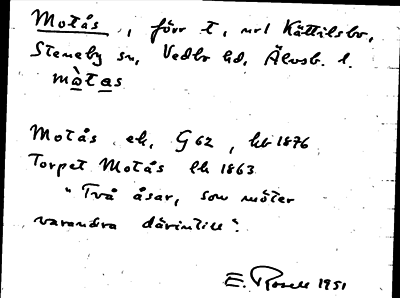 Motås, förr t, u.r.l Kättilsbo,
Steneby sn, Vedbo hd, Älvsb. l.
mòtas
Motås ek, G 62, hb 1876
Torpet Motås lk 1863
"Två åsar, som möter
varandra därintill".
E. Rosell 1951